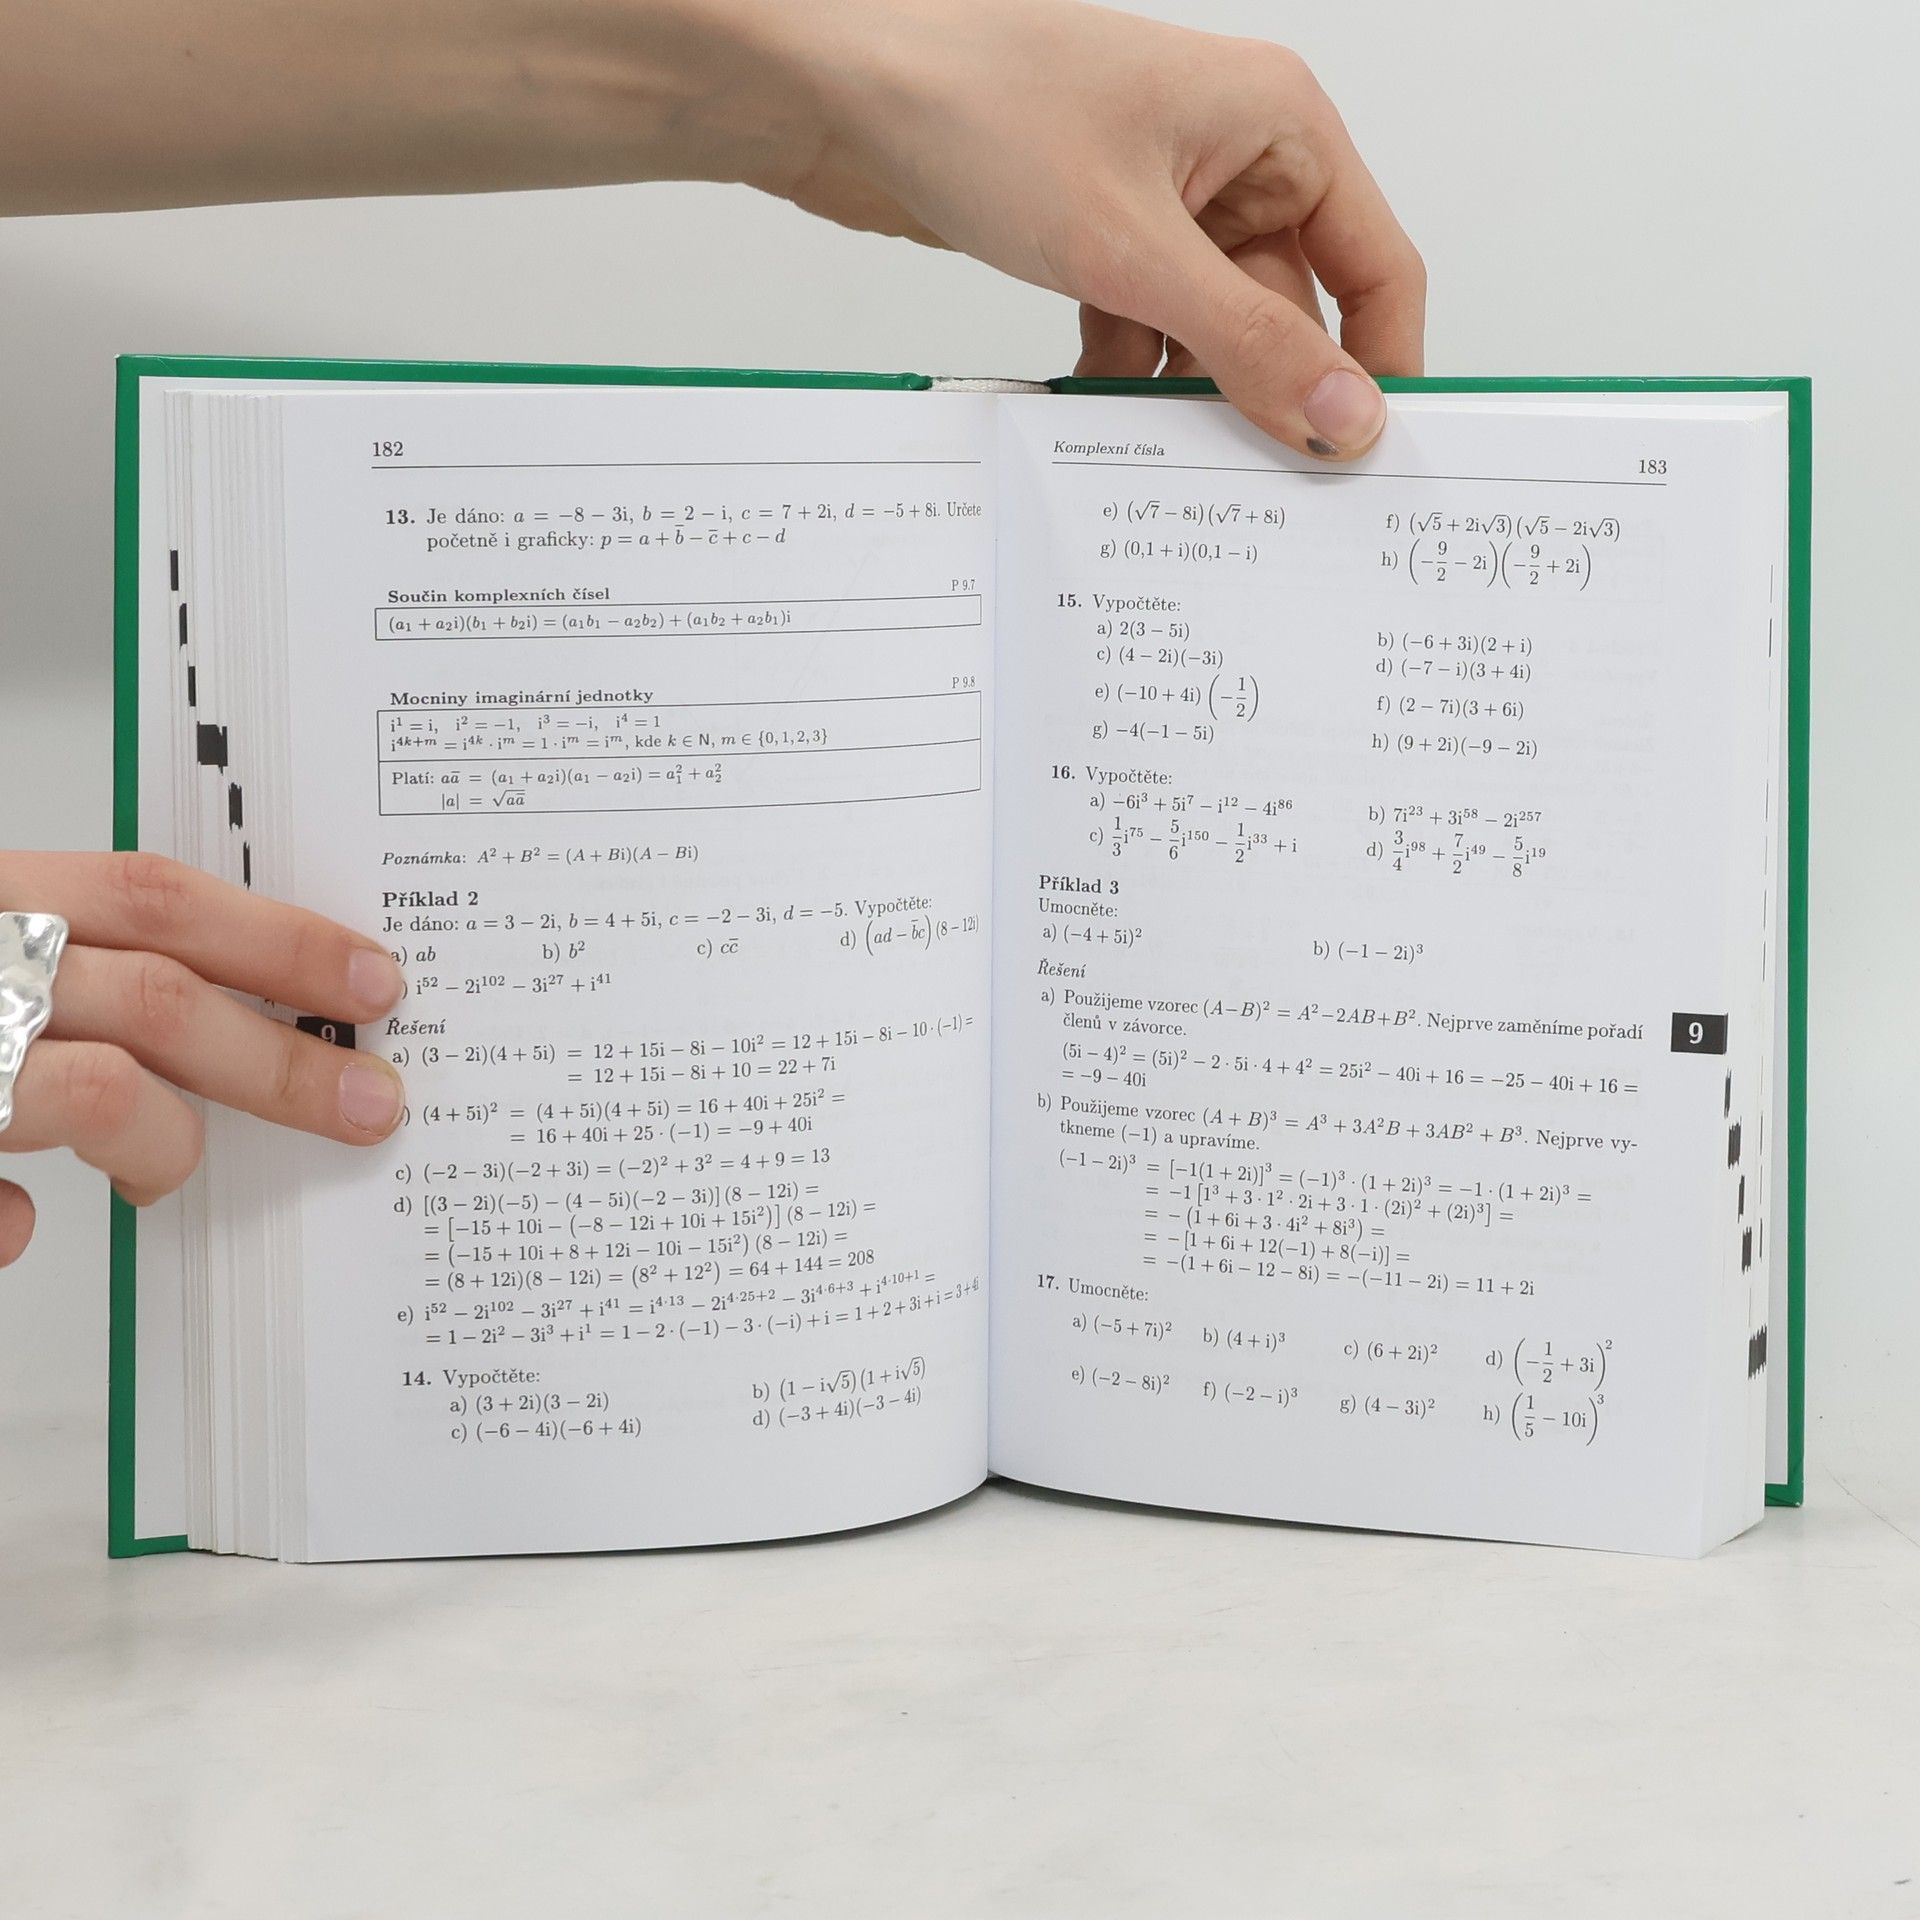 182
13. Je dáno: a = −8 − 3i, b = 2 − i, c = 7 + 2i, d = −5 + 8i. Určete
početně i graficky: p = a + b̄ − c̄ + c − d
Součin komplexních čísel P 9.7
(a₁ + a₂i)(b₁ + b₂i) = (a₁b₁ − a₂b₂) + (a₁b₂ + a₂b₁)i
Mocniny imaginární jednotky P 9.8
i¹ = i, i² = −1, i³ = −i, i⁴ = 1
i⁴ᵏ⁺ᵐ = i⁴ᵏ · iᵐ = 1 · iᵐ = iᵐ, kde k ∈ N, m ∈ {0, 1, 2, 3}
Platí: aā = (a₁ + a₂i)(a₁ − a₂i) = a₁² + a₂²
|a| = √(aā)
Poznámka: A² + B² = (A + Bi)(A − Bi)
Příklad 2
Je dáno: a = 3 − 2i, b = 4 + 5i, c = −2 − 3i, d = −5. Vypočtěte:
a) ab b) b² c) cc̄ d) (ad − b̄c)(8 − 12i)
) i⁵² − 2i¹⁰² − 3i²⁷ + i⁴¹
9
Řešení
a) (3 − 2i)(4 + 5i) = 12 + 15i − 8i − 10i² = 12 + 15i − 8i − 10 · (−1) =
= 12 + 15i − 8i + 10 = 22 + 7i
) (4 + 5i)² = (4 + 5i)(4 + 5i) = 16 + 40i + 25i² =
= 16 + 40i + 25 · (−1) = −9 + 40i
c) (−2 − 3i)(−2 + 3i) = (−2)² + 3² = 4 + 9 = 13
d) [(3 − 2i)(−5) − (4 − 5i)(−2 − 3i)] (8 − 12i) =
= [−15 + 10i − (−8 − 12i + 10i + 15i²)] (8 − 12i) =
= (−15 + 10i + 8 + 12i − 10i − 15i²) (8 − 12i) =
= (8 + 12i)(8 − 12i) = (8² + 12²) = 64 + 144 = 208
e) i⁵² − 2i¹⁰² − 3i²⁷ + i⁴¹ = i⁴·¹³ − 2i⁴·²⁵⁺² − 3i⁴·⁶⁺³ + i⁴·¹⁰⁺¹ =
= 1 − 2i² − 3i³ + i¹ = 1 − 2 · (−1) − 3 · (−i) + i = 1 + 2 + 3i + i = 3 + 4i
14. Vypočtěte:
a) (3 + 2i)(3 − 2i) b) (1 − i√5)(1 + i√5)
c) (−6 − 4i)(−6 + 4i) d) (−3 + 4i)(−3 − 4i)
Komplexní čísla 183
e) (√7 − 8i)(√7 + 8i) f) (√5 + 2i√3)(√5 − 2i√3)
g) (0,1 + i)(0,1 − i) h) (−9/2 − 2i)(−9/2 + 2i)
15. Vypočtěte:
a) 2(3 − 5i) b) (−6 + 3i)(2 + i)
c) (4 − 2i)(−3i) d) (−7 − i)(3 + 4i)
e) (−10 + 4i)(−1/2) f) (2 − 7i)(3 + 6i)
g) −4(−1 − 5i) h) (9 + 2i)(−9 − 2i)
16. Vypočtěte:
a) −6i³ + 5i⁷ − i¹² − 4i⁸⁶ b) 7i²³ + 3i⁵⁸ − 2i²⁵⁷
c) 1/3 i⁷⁵ − 5/6 i¹⁵⁰ − 1/2 i³³ + i d) 3/4 i⁹⁸ + 7/2 i⁴⁹ − 5/8 i¹⁹
Příklad 3
Umocněte:
a) (−4 + 5i)² b) (−1 − 2i)³
Řešení
a) Použijeme vzorec (A−B)² = A²−2AB+B². Nejprve zaměníme pořadí
členů v závorce.
(5i − 4)² = (5i)² − 2 · 5i · 4 + 4² = 25i² − 40i + 16 = −25 − 40i + 16 =
= −9 − 40i
9
b) Použijeme vzorec (A + B)³ = A³ + 3A²B + 3AB² + B³. Nejprve vy-
tkneme (−1) a upravíme.
(−1 − 2i)³ = [−1(1 + 2i)]³ = (−1)³ · (1 + 2i)³ = −1 · (1 + 2i)³ =
= −1 [1³ + 3 · 1² · 2i + 3 · 1 · (2i)² + (2i)³] =
= − (1 + 6i + 3 · 4i² + 8i³) =
= − [1 + 6i + 12(−1) + 8(−i)] =
= −(1 + 6i − 12 − 8i) = −(−11 − 2i) = 11 + 2i
17. Umocněte:
a) (−5 + 7i)² b) (4 + i)³ c) (6 + 2i)² d) (−1/2 + 3i)²
e) (−2 − 8i)² f) (−2 − i)³ g) (4 − 3i)² h) (1/5 − 10i)³